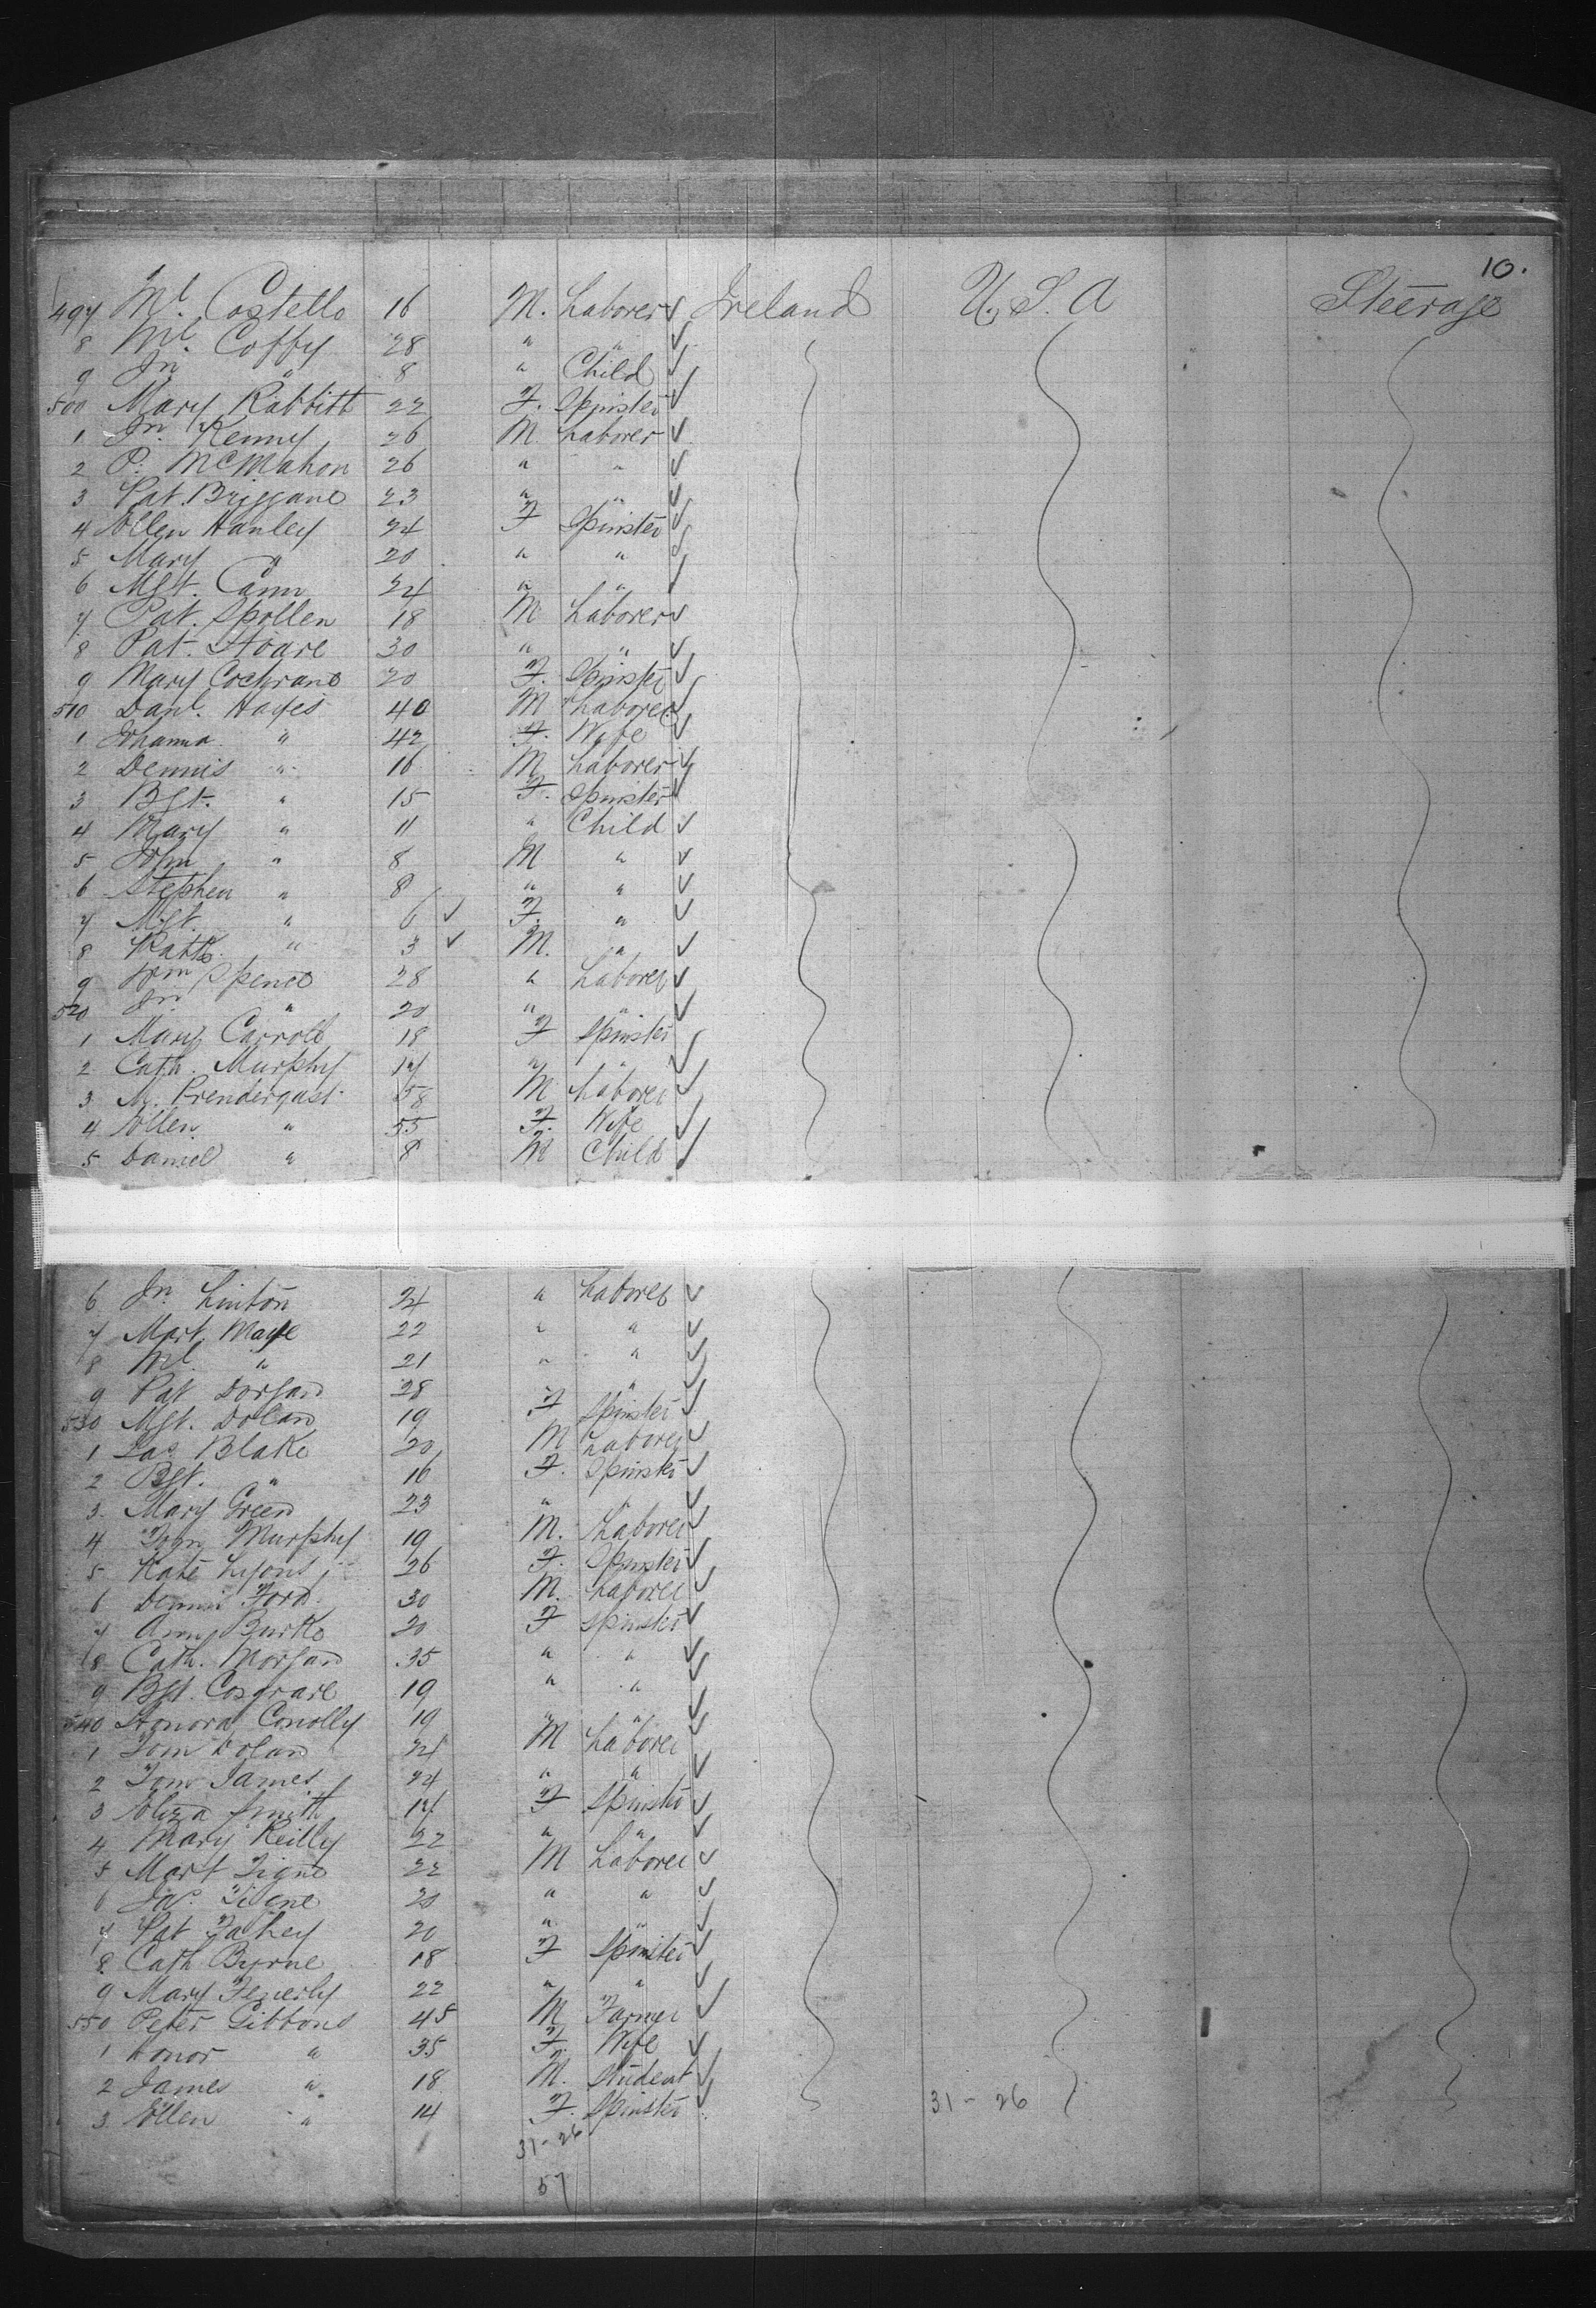 10.
497 Ml. Costello 16 M. Laborer Ireland U.S.A Steerage
8 Ml. Coffy 28 " "
9 Jn " 8 " Child
500 Mary Rabbitt 22 F. Spinster
1 Jn. Kenny 26 M. Laborer
2 P. McMahon 26 " "
3 Pat. 23 " "
4 Ellen Hanley 24 F Spinster
5 Mary " 20 " "
6 Mgt. Cann 24 " "
7 Pat. Spollen 18 M Laborer
8 Pat. Hoare 30 " "
9 Mary Cochrane 20 F. Spinster
510 Danl. Hayes 40 M Laborer
1 Johanna " 42 F. Wife
2 Dennis " 16 M Laborer
3 Bgt. " 15 F. Spinster
4 Mary " 11 " Child
5 John " 8 M "
6 Stephen " 8 " "
7 Mgt. " 6 F. "
8 Patk. " 3 M. "
9 Wm Spence 28 " Laborer
520 Jn " 20 " "
1 Mary Carroll 18 F Spinster
2 Cath. Murphy 17 " "
3 M. Prendergast 58 M Laborer
4 Ellen " 55 F. Wife
5 Daniel " 8 M Child
6 Jn. Linton 24 " Laborer
7 Mart. 22 " "
8 Ml. " 21 " "
9 Pat Dorgan 28 " "
530 Mgt. Dolan 19 F Spinster
1 Jas. Blake 20 M Laborer
2 Bgt. " 16 F. Spinster
3 Mary Green 23 " "
4 Murphy 19 M. Laborer
5 Kate Lyons 26 F. Spinster
6 Dennis Ford 30 M. Laborer
7 Ann Burke 20 F Spinster
8 Cath. Morgan 35 " "
9 Bgt. Cosgrave 19 " "
540 Honora Conolly 19 " "
1 Tom Dolan 24 M Laborer
2 Tom James 24 " "
3 Eliza Smith 17 F Spinster
4 Mary Reilly 22 " "
5 Mart Tigne 22 M Laborer
6 Jas. Tigne 20 " "
7 Pat Fahey 20 " "
8 Cath Byrne 18 F Spinster
9 Mary 22 " "
550 Peter Gibbons 45 M Farmer
1 Honor " 35 F. Wife
2 James " 18 M. Student
3 Ellen " 14 F. Spinster
31-26
31-26
57